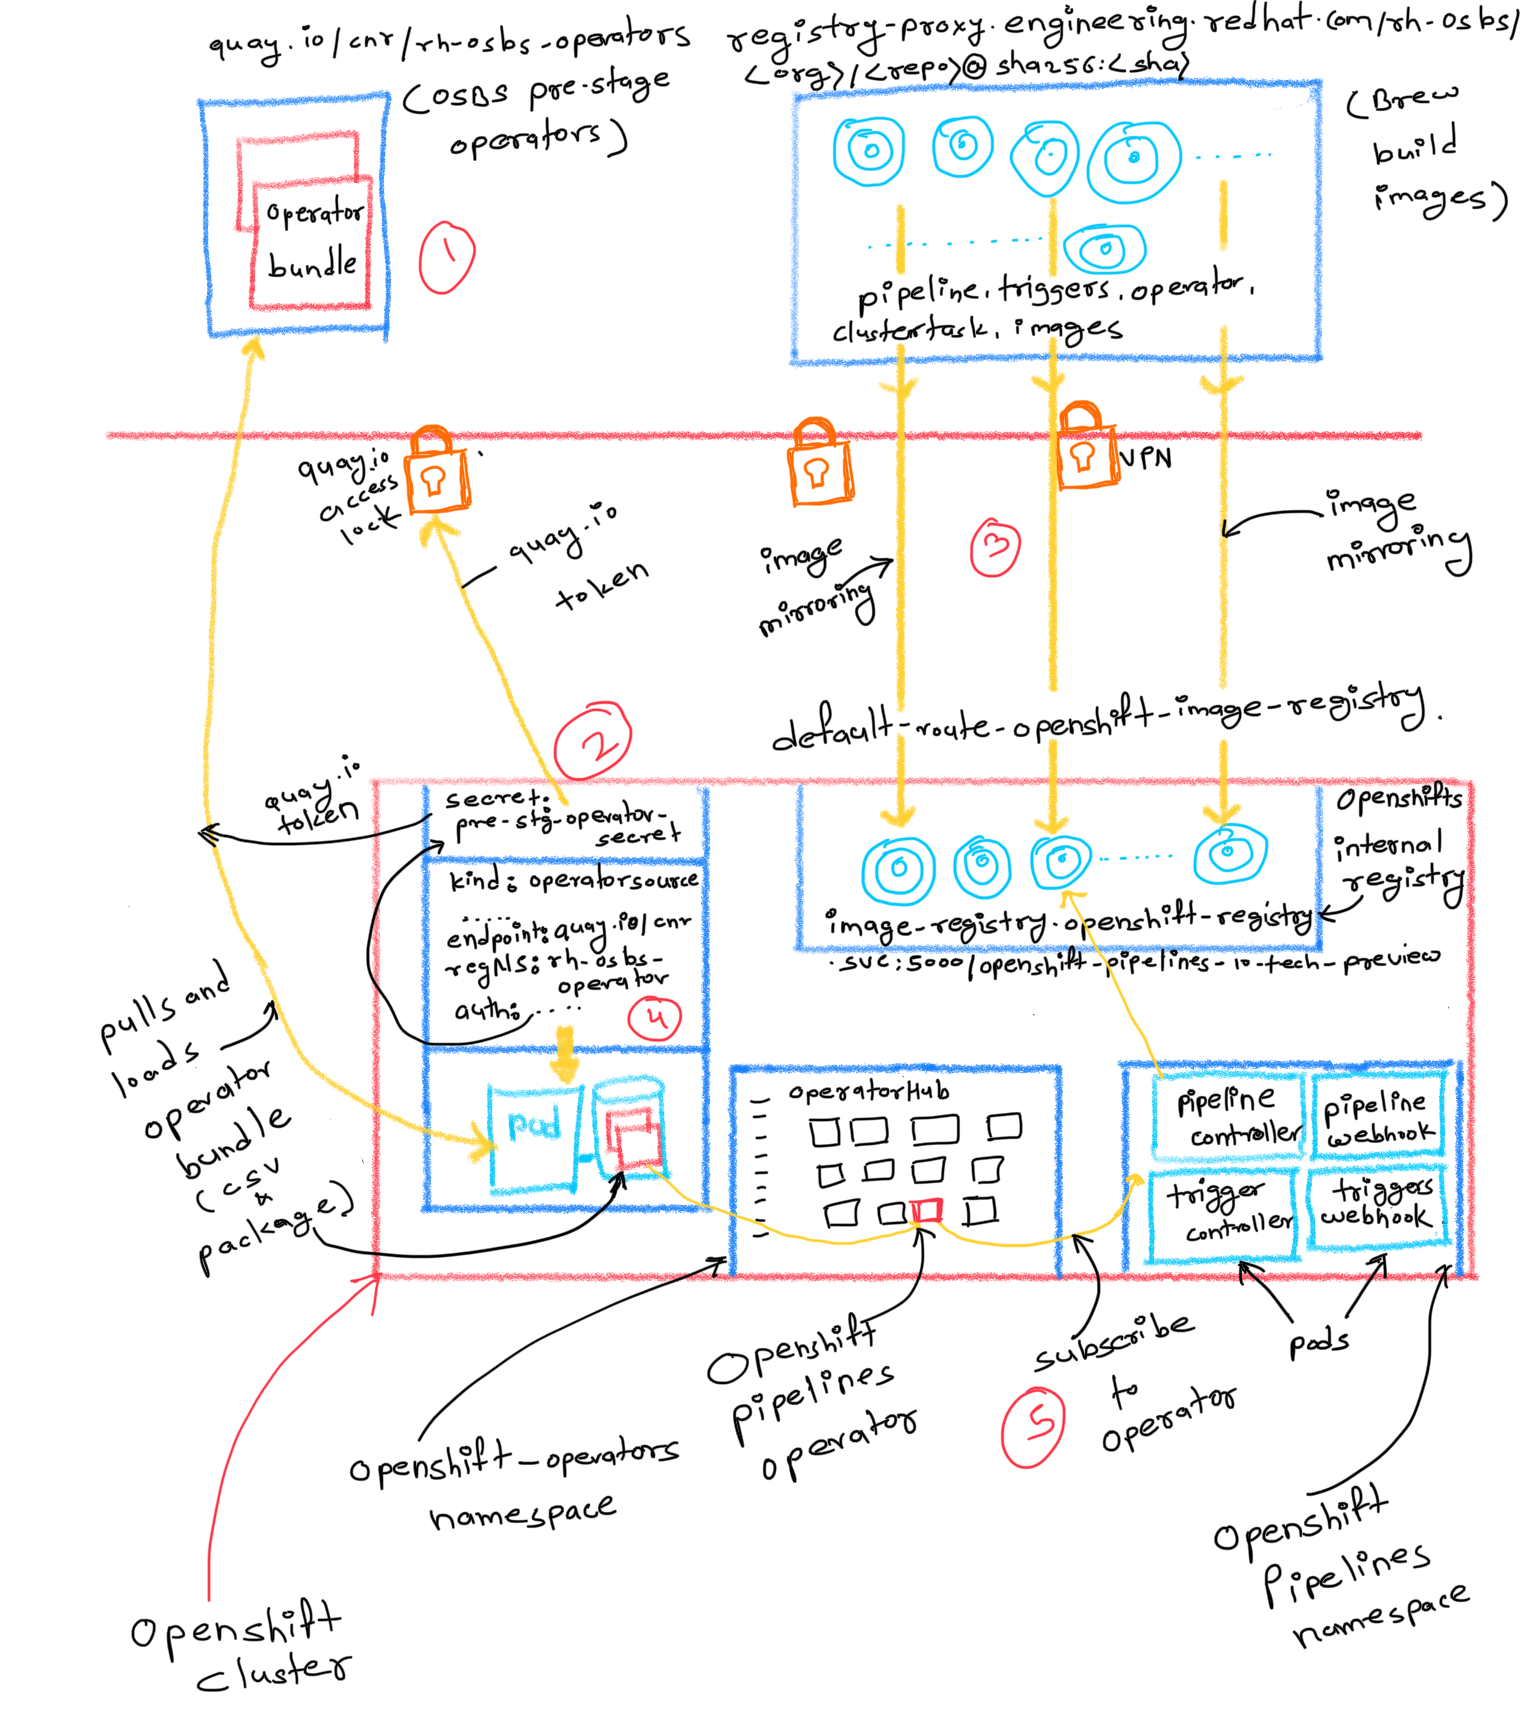 quay.io/cnr/rh-osbs-operators
(OSBS pre-stage
operators)
registry-proxy.engineering.redhat.com/rh-osbs/
<org>/<repo>@sha256:<sha>
(Brew
build
images)
operator
bundle
1
pipeline, triggers, operator,
clustertask, images
quay.io
access
lock
VPN
quay.io
token
image
mirroring
3
image
mirroring
2
default-route-openshift-image-registry.
quay.io
token
secret:
pre-stg-operator-
secret
kind: operatorsource
......
endpoint: quay.io/cnr
regNS: rh-osbs-
operator
auth: ....
4
Openshifts
internal
registry
image-registry.openshift-registry
.svc:5000/openshift-pipelines-10-tech-preview
pulls and
loads
operator
bundle
(csv
&
package)
pod
operatorHub
pipeline
controller
pipeline
webhook
trigger
controller
triggers
webhook
Openshift
pipelines
operator
subscribe
to
operator
5
pods
openshift-operators
namespace
Openshift
Pipelines
namespace
Openshift
cluster